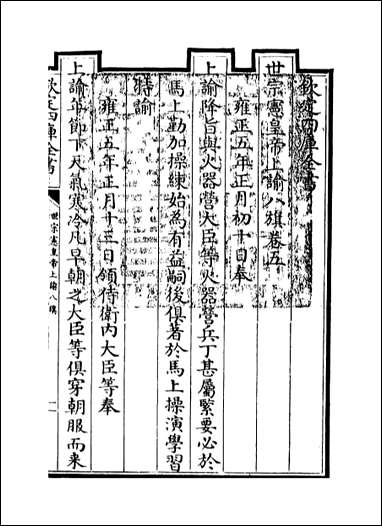 欽定四庫全書
世宗憲皇帝上諭八旗卷五
雍正五年正月初十日奉
上諭降旨與火器營大臣等火器營兵丁甚屬緊要必於
馬上勤加操練始為有益嗣後俱著於馬上操演學習
特諭
雍正五年正月十三日領侍衛內大臣等奉
上諭節下天氣寒冷凡早朝之大臣等俱穿朝服而来
欽定四庫全書
世宗憲皇帝上諭八旗